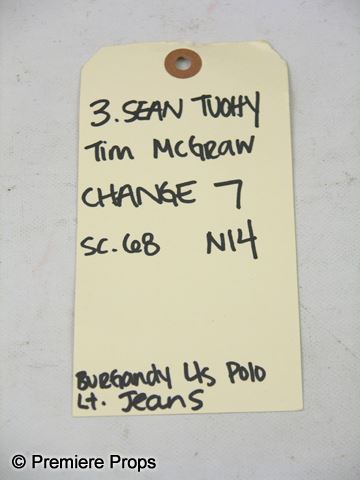 3. SEAN TUOHY
Tim McGRAW
CHANGE 7
SC. 68 N14
BURGANDY L/s Polo
Lt. Jeans
© Premiere Props